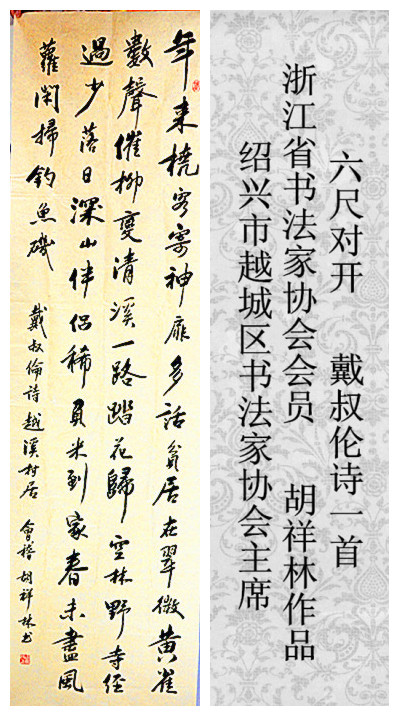 年来桡客寄神扉多話貧居在翠微黄雀
數聲催柳變清溪一路踏花歸空林野寺径
過少落日深山伴侣稀負米到家春未盡風
蘿閑掃釣魚磯 戴叔倫詩越溪村居 會稽胡祥林书
六尺对开 戴叔伦诗一首
浙江省书法家协会会员 胡祥林作品
绍兴市越城区书法家协会主席